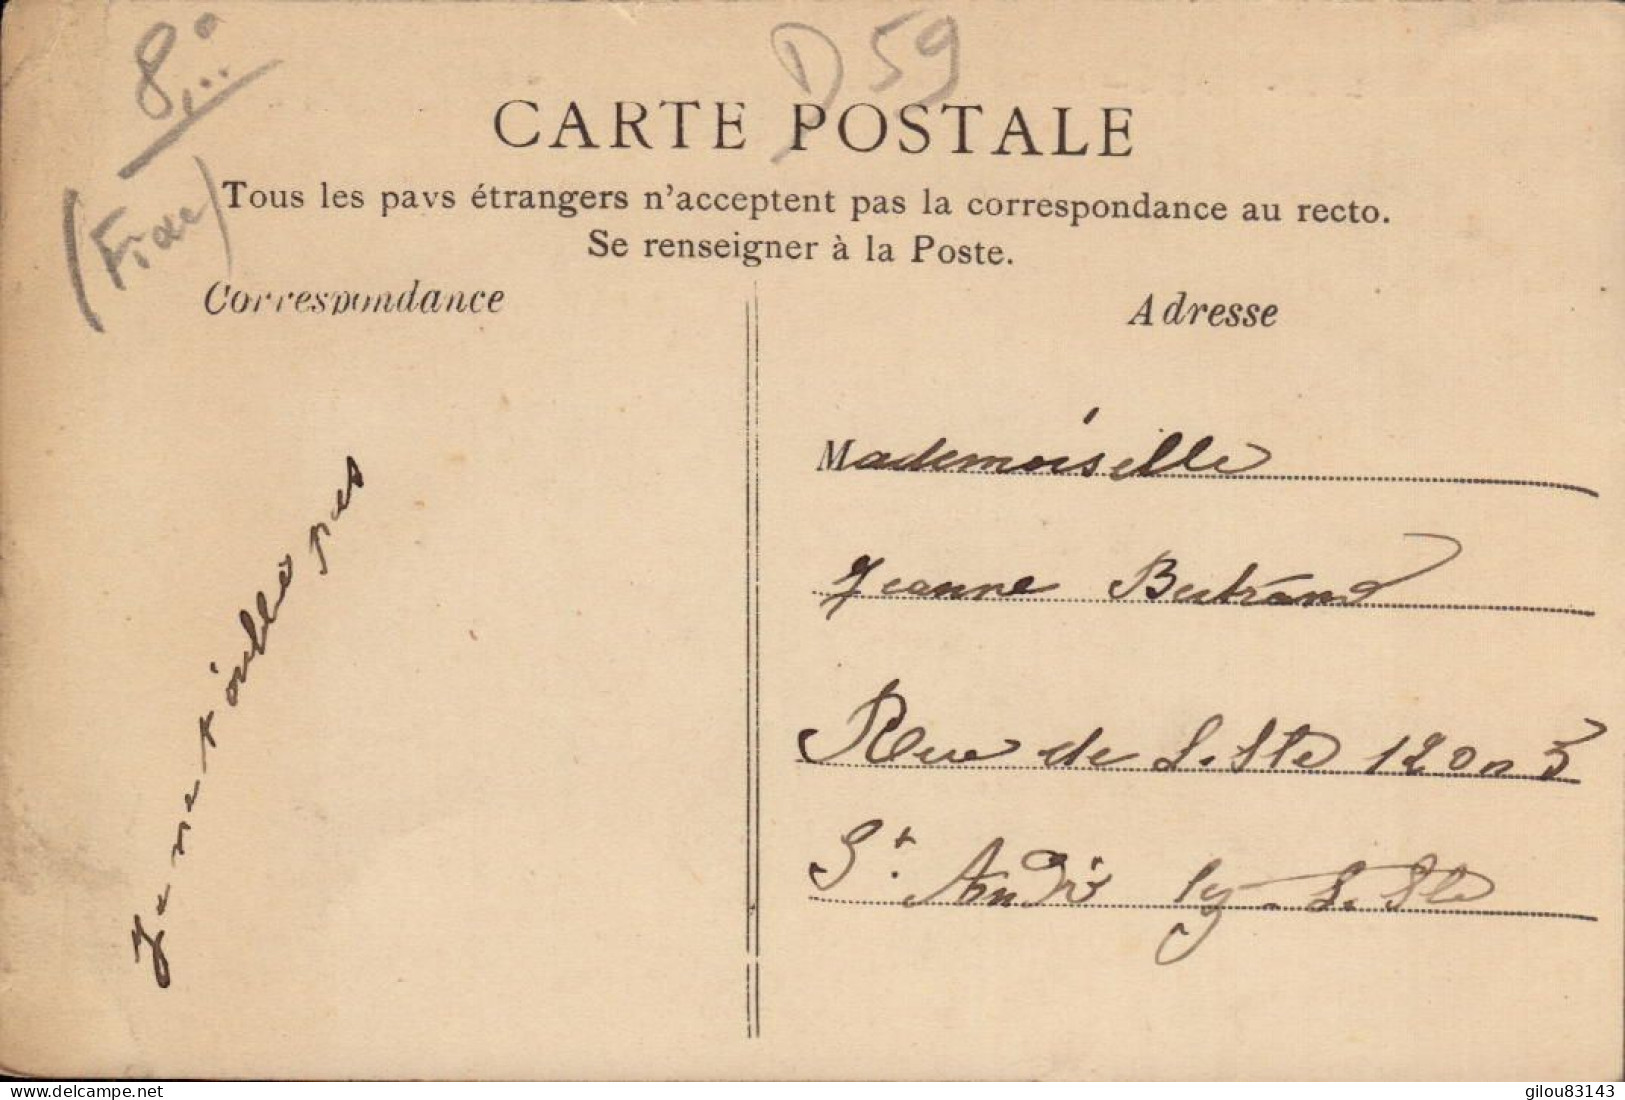 8,00
D59
(Fixe)
CARTE POSTALE
Tous les pays étrangers n'acceptent pas la correspondance au recto.
Se renseigner à la Poste.
Correspondance
Adresse
Je ne t'oublie pas
Mademoiselle
Jeanne Bertrand
Rue de Lille 120 n 3
St. André lg-Lille
delcampe.net
gilou83143